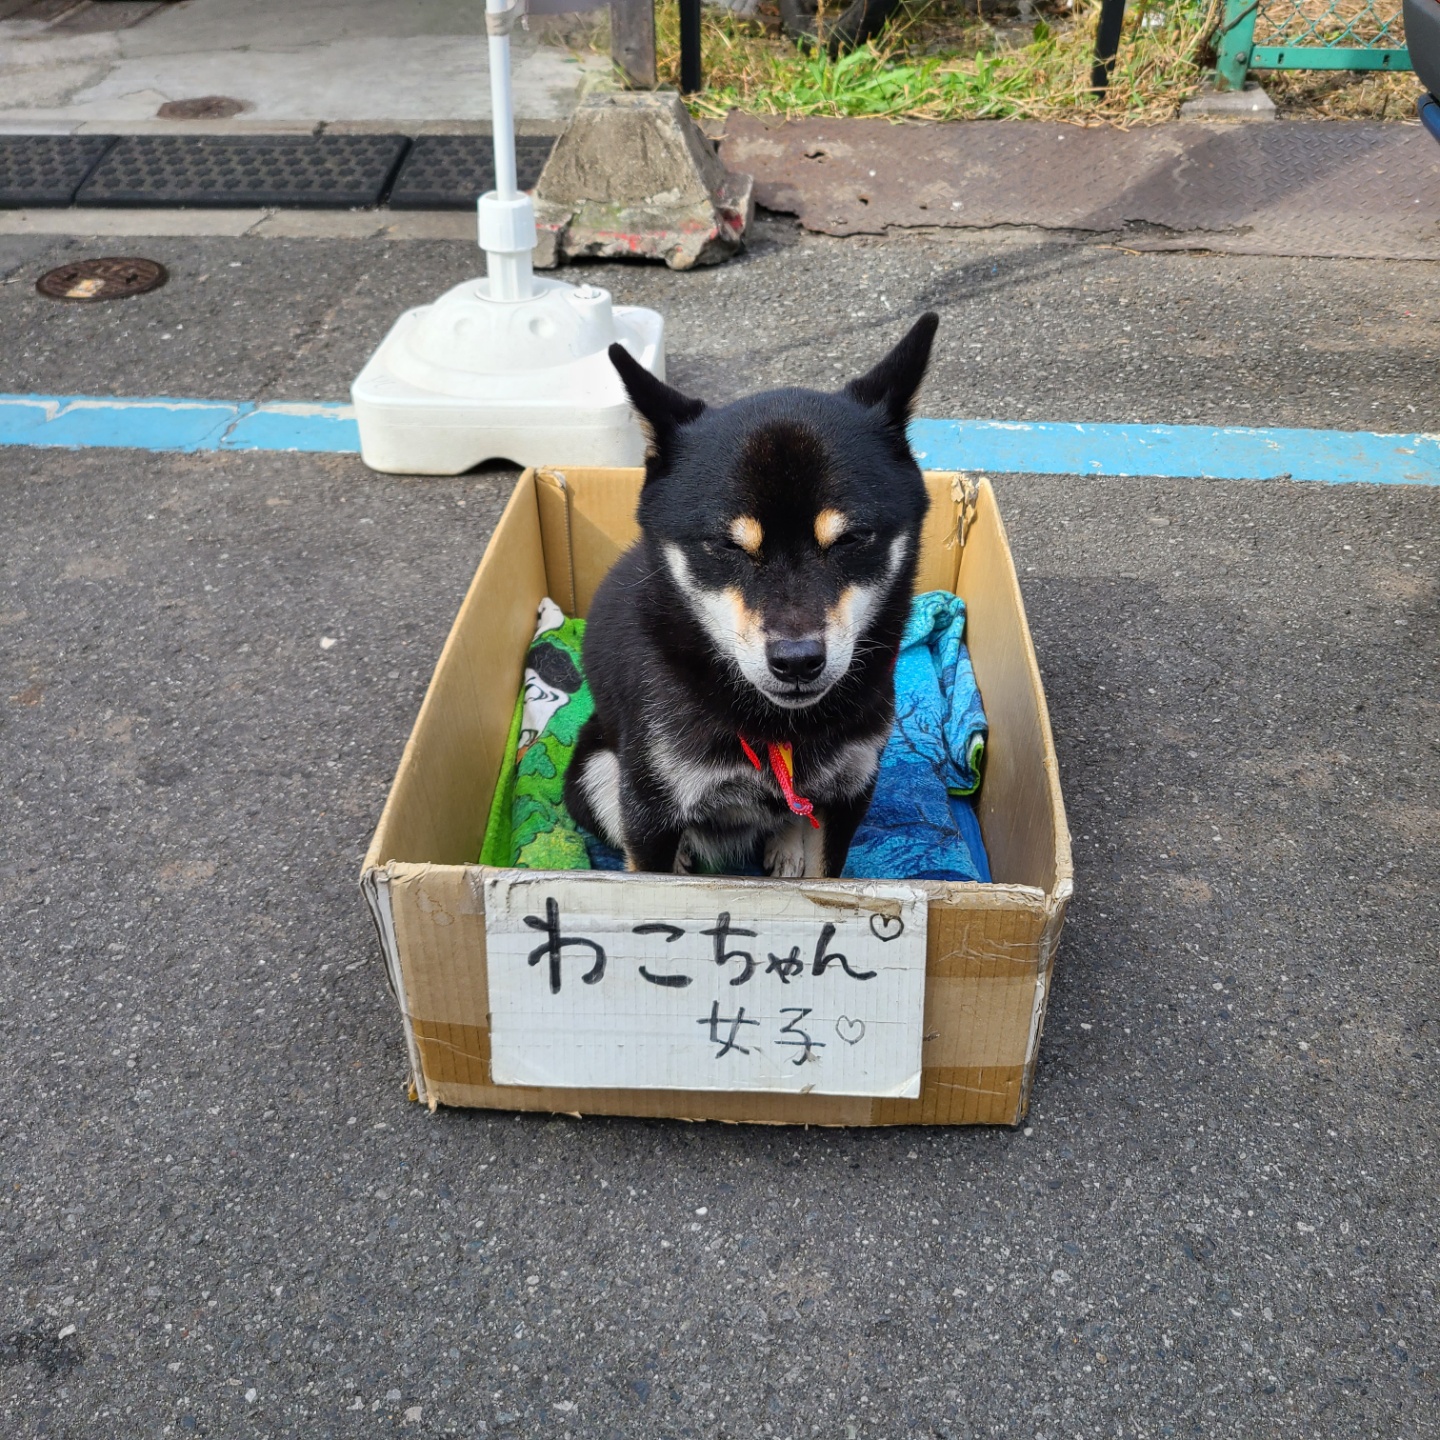 わこちゃん♡
女子♡